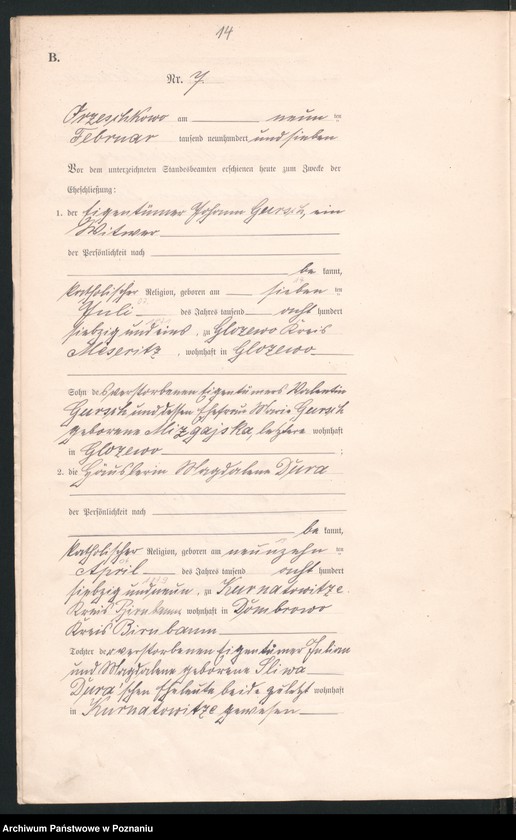 14
B.
Nr. 7
Trzeschkowo am neun ten
Februar tausend neunhundert und sieben
Vor dem unterzeichneten Standesbeamten erschienen heute zum Zwecke der
Eheschließung:
1. der Eigentümer Johann Gursch, ein
Witwer
der Persönlichkeit nach
be kannt,
katholischer Religion, geboren am sieben ten
Juli des Jahres tausend acht hundert
siebzig und eins, zu Glozewo Kreis
Meseritz, wohnhaft in Glozewo
Sohn des verstorbenen Eigentümers Valentin
Gursch und dessen Ehefrau Marie Gursch
geborene Mizgajska, letztere wohnhaft
in Glozewo ;
2. die Häuslerin Magdalena Dura
der Persönlichkeit nach
be kannt,
katholischer Religion, geboren am neunzehn ten
April des Jahres tausend acht hundert
siebzig und neun, zu Kurnatowitze
Kreis Birnbaum wohnhaft in Dombrowo
Kreis Birnbaum
Tochter der verstorbenen Eigentümer
und Magdalena geborene Sliwa
Dura'schen Eheleute beide zuletzt wohnhaft
in Kurnatowitze gewesen
Archiwum Państwowe w Poznaniu